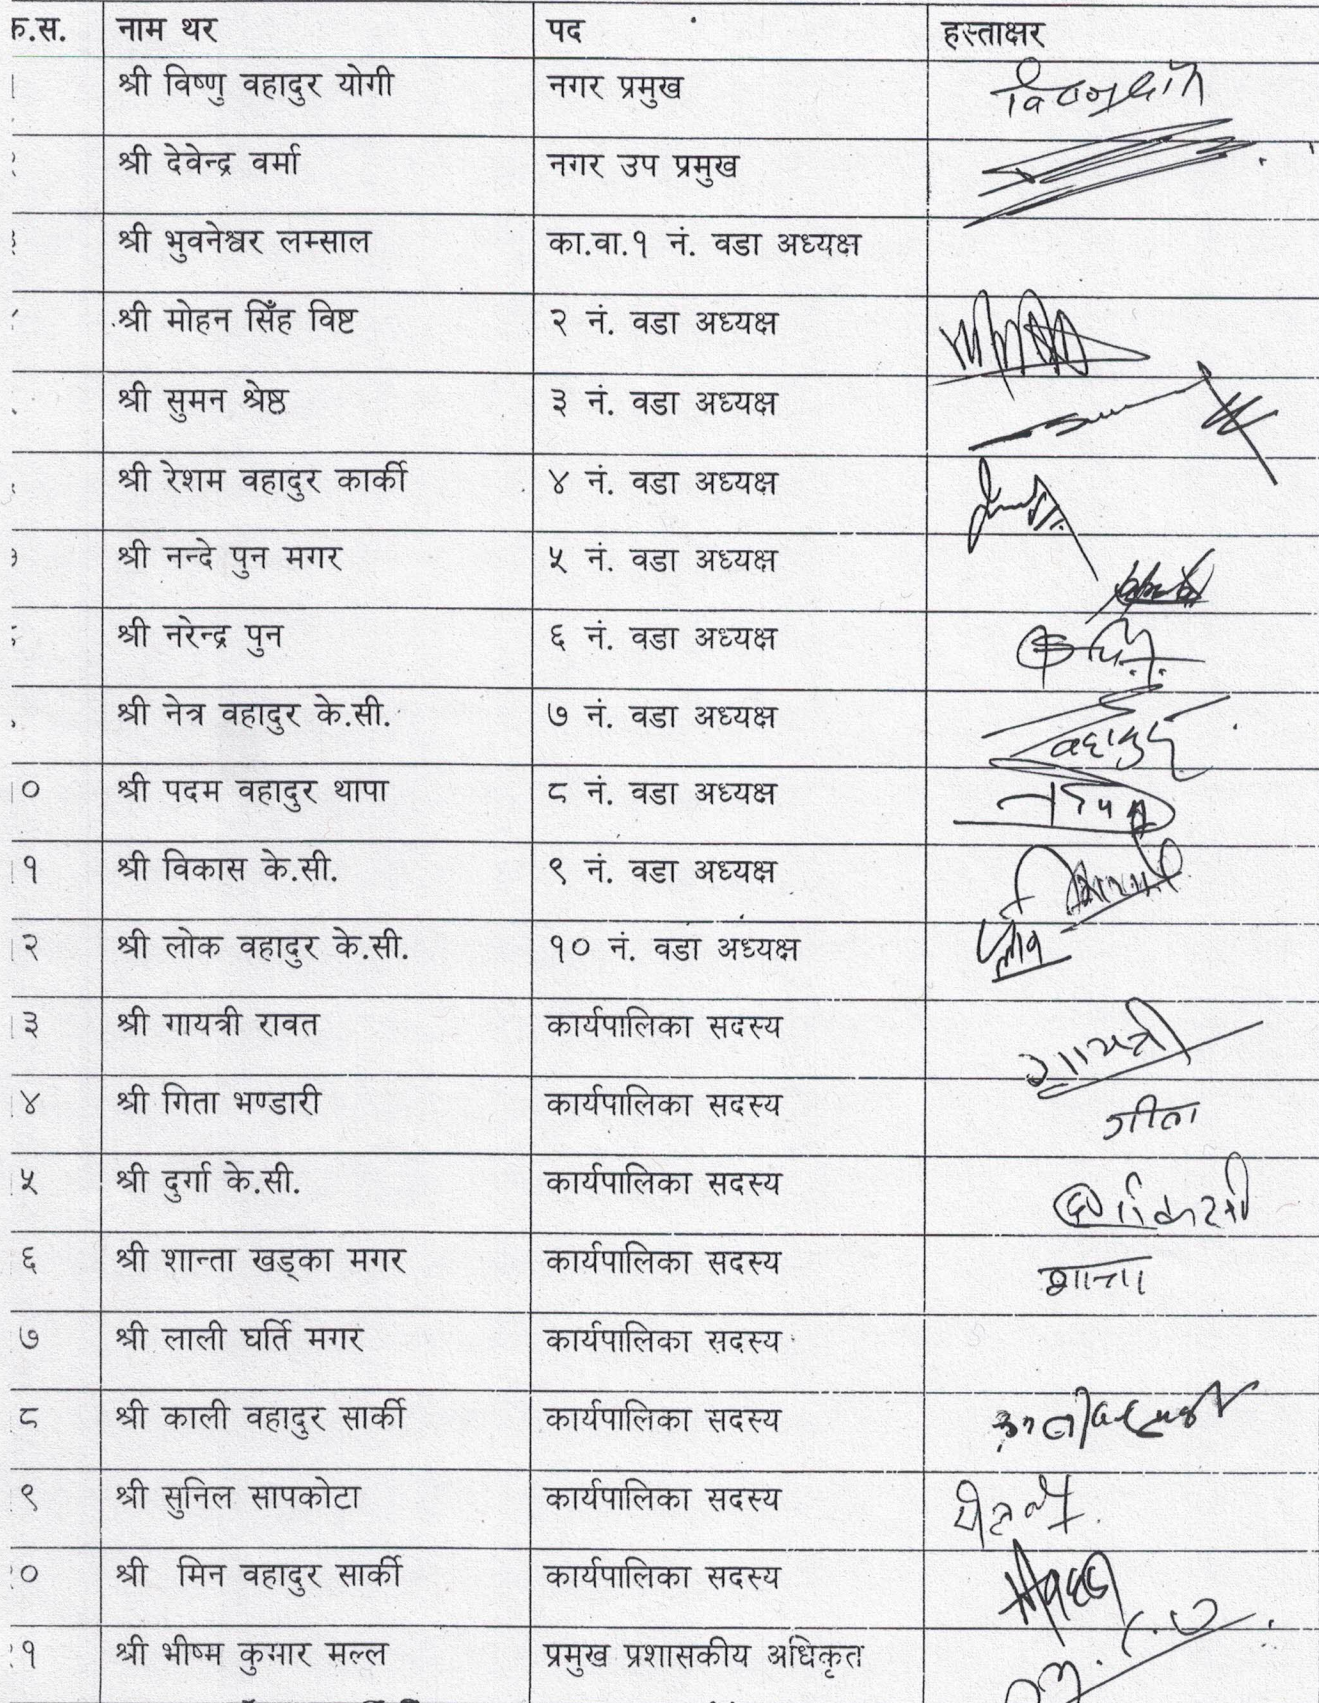 क.स. नाम थर पद हस्ताक्षर
श्री विष्णु वहादुर योगी नगर प्रमुख
श्री देवेन्द्र वर्मा नगर उप प्रमुख
श्री भुवनेश्वर लम्साल का.वा.१ नं. वडा अध्यक्ष
श्री मोहन सिँह विष्ट २ नं. वडा अध्यक्ष
श्री सुमन श्रेष्ठ ३ नं. वडा अध्यक्ष
श्री रेशम वहादुर कार्की ४ नं. वडा अध्यक्ष
श्री नन्दे पुन मगर ५ नं. वडा अध्यक्ष
श्री नरेन्द्र पुन ६ नं. वडा अध्यक्ष
श्री नेत्र वहादुर के.सी. ७ नं. वडा अध्यक्ष वहादुर
१० श्री पदम वहादुर थापा ८ नं. वडा अध्यक्ष
११ श्री विकास के.सी. ९ नं. वडा अध्यक्ष
१२ श्री लोक वहादुर के.सी. १० नं. वडा अध्यक्ष
१३ श्री गायत्री रावत कार्यपालिका सदस्य गायत्री
१४ श्री गिता भण्डारी कार्यपालिका सदस्य गीता
१५ श्री दुर्गा के.सी. कार्यपालिका सदस्य
६ श्री शान्ता खड्का मगर कार्यपालिका सदस्य शान्ता
७ श्री लाली घर्ति मगर कार्यपालिका सदस्य
८ श्री काली वहादुर सार्की कार्यपालिका सदस्य
९ श्री सुनिल सापकोटा कार्यपालिका सदस्य
०  श्री मिन वहादुर सार्की कार्यपालिका सदस्य
१ श्री भीष्म कुमार मल्ल प्रमुख प्रशासकीय अधिकृत